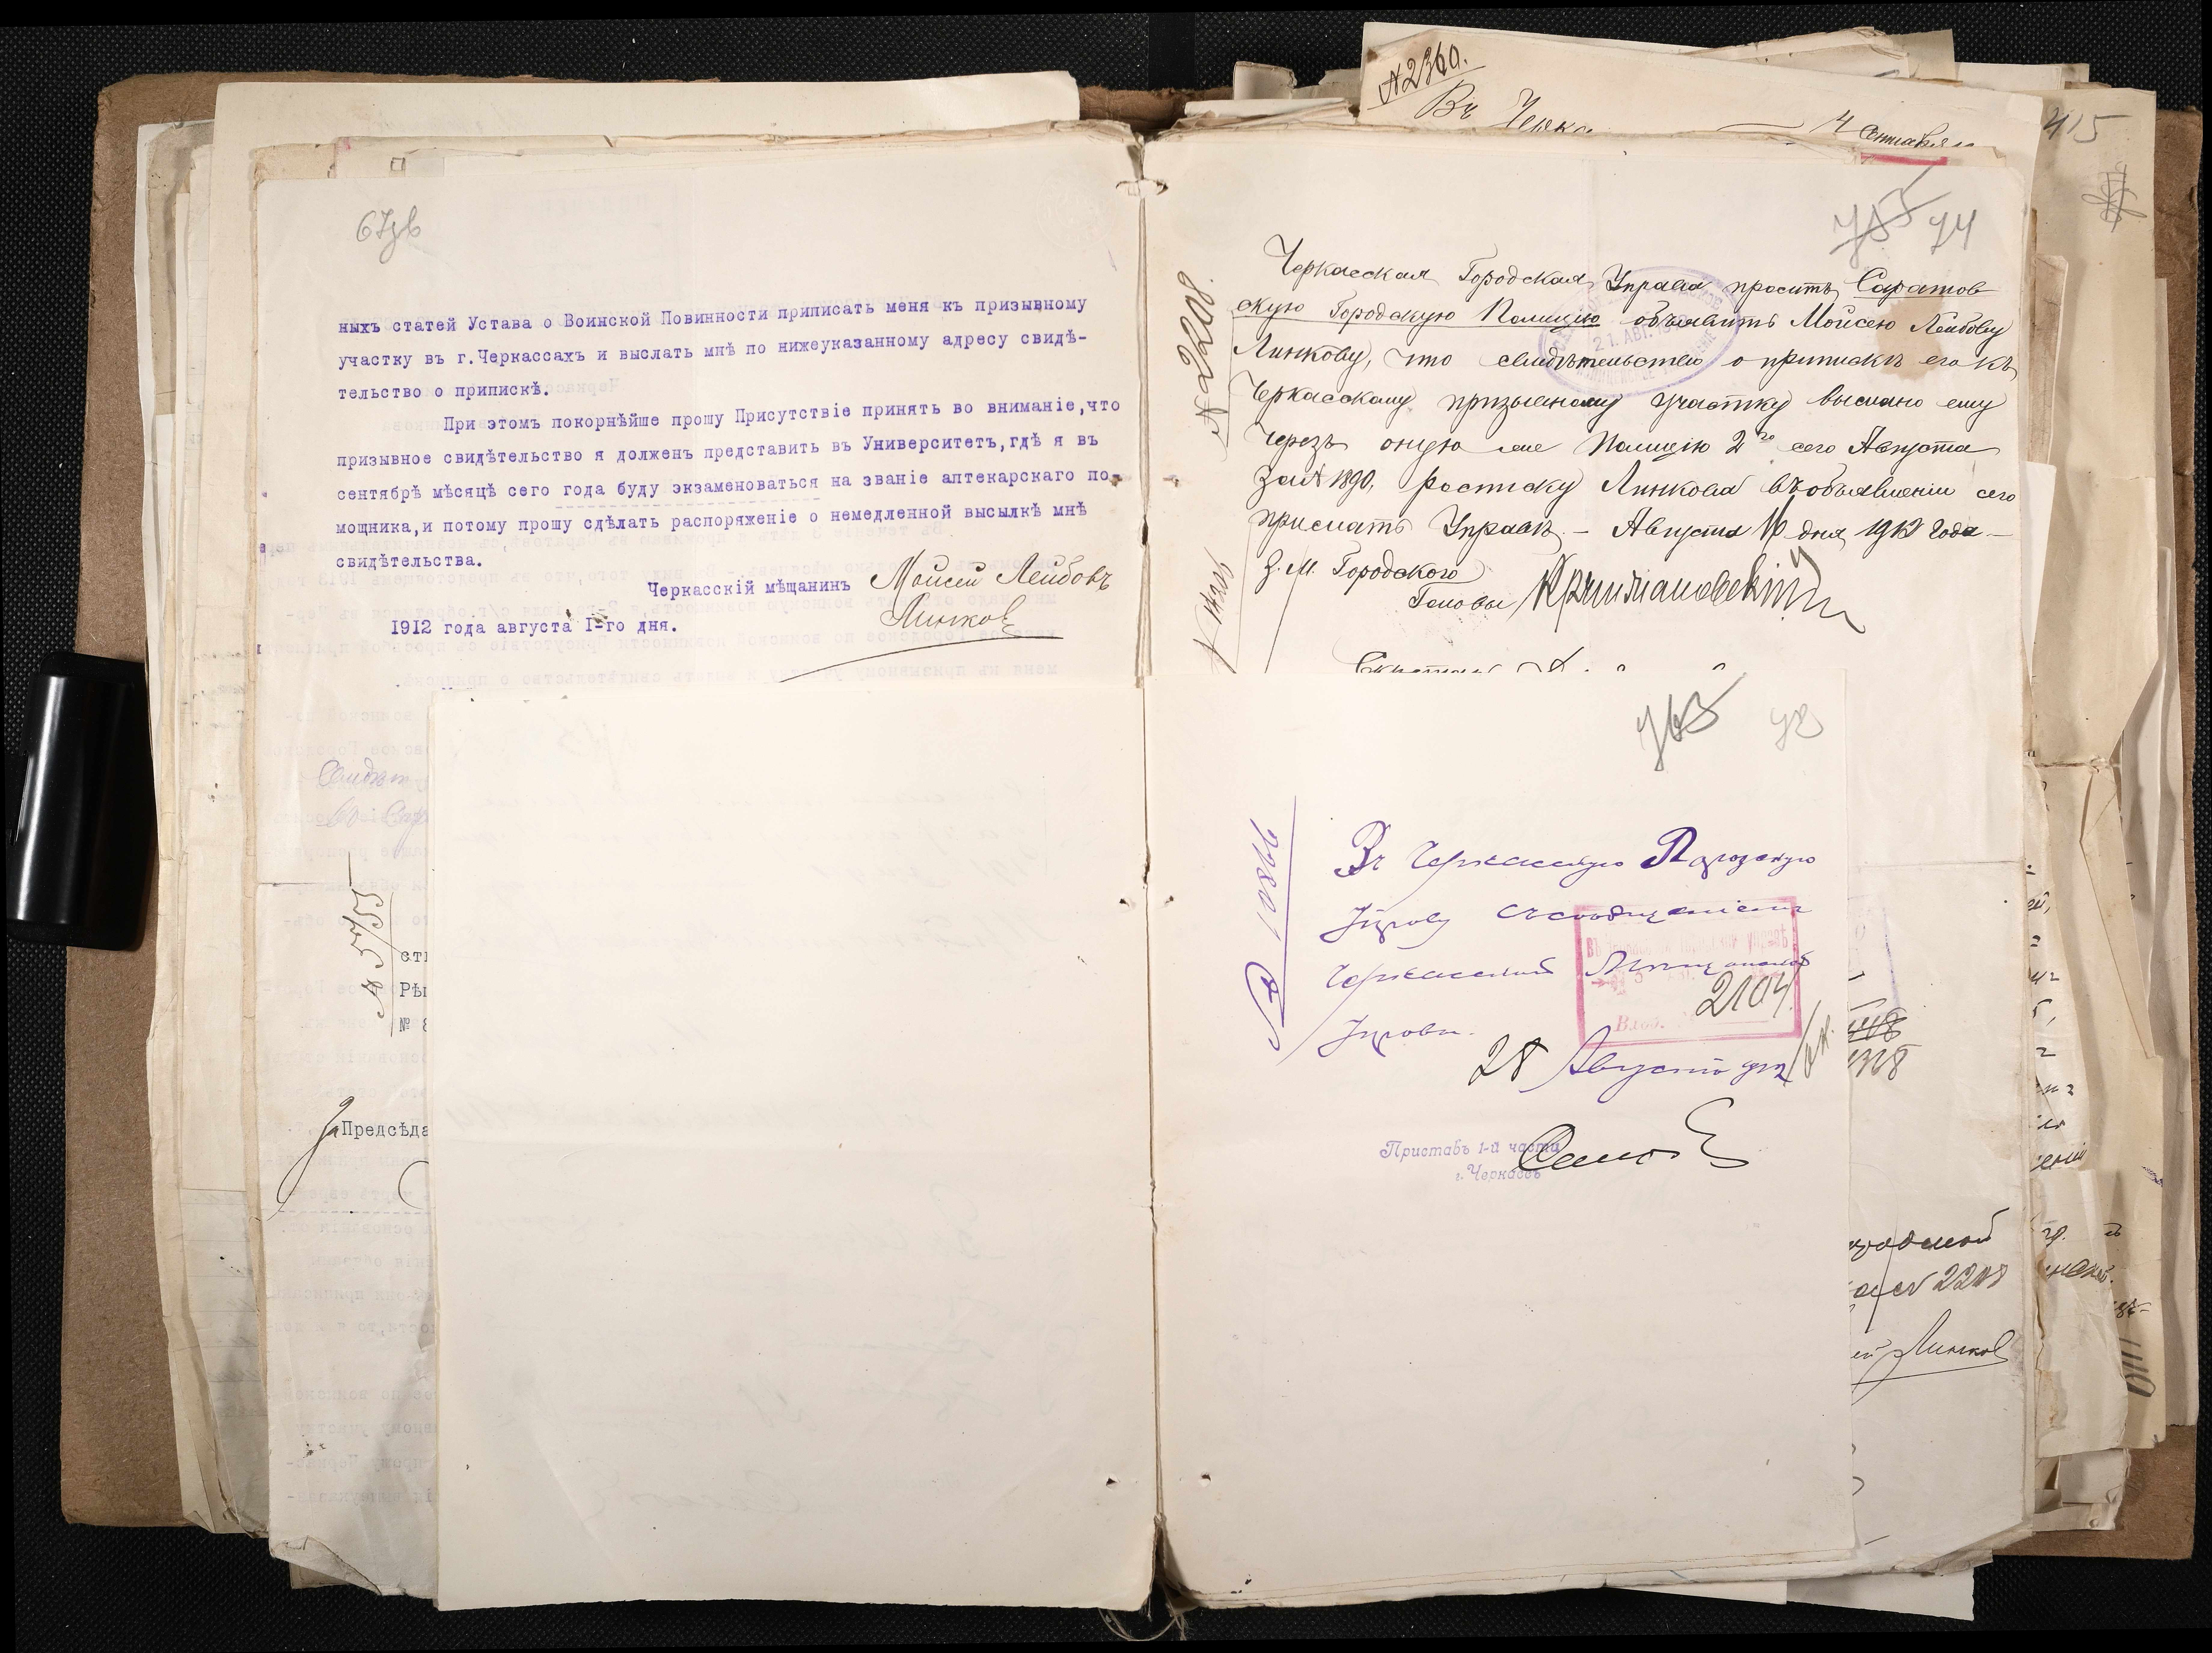 67зв
ныхъ статей Устава о Воинской Повинности приписать меня къ призывному
участку въ г.Черкассахъ и выслать мнѣ по нижеуказанному адресу свидѣ-
тельство о припискѣ.
При этомъ покорнѣйше прошу Присутствіе принять во вниманіе,что
призывное свидѣтельство я долженъ представить въ Университетъ,гдѣ я въ
сентябрѣ мѣсяцѣ сего года буду экзаменоваться на званіе аптекарскаго по-
мощника,и потому прошу сдѣлать распоряженіе о немедленной высылкѣ мнѣ
свидѣтельства.
Черкасскій мѣщанинъ Мойсей Лейбовъ
Линков
1912 года августа I-го дня.
Предсѣда
№2360.
Въ Черка
4 Сентября
415
74
№2208.
Черкасская Городская Управа проситъ Саратов
скую Городскую Полицію объявить Мойсею Лейбову
Линкову, что свидѣтельство о припискѣ его къ
Черкасскому призывному участку выслано ему
черезъ оную же Полицію 2го сего Августа
за № 1890, росписку Линкова въ объявленіи сего
прислать Управѣ. – Августа 16 дня 1912 года –
З. М. Городского
Головы
21. АВГ. 191
763 78
№ 10866
Въ Черкасскую Городскую
Управу съ сообщеніемъ
Черкасской Мѣщанской
Управы.
2104
28 Августа дня
Приставъ 1-й части
г. Черкассъ
№ 2208
Линков